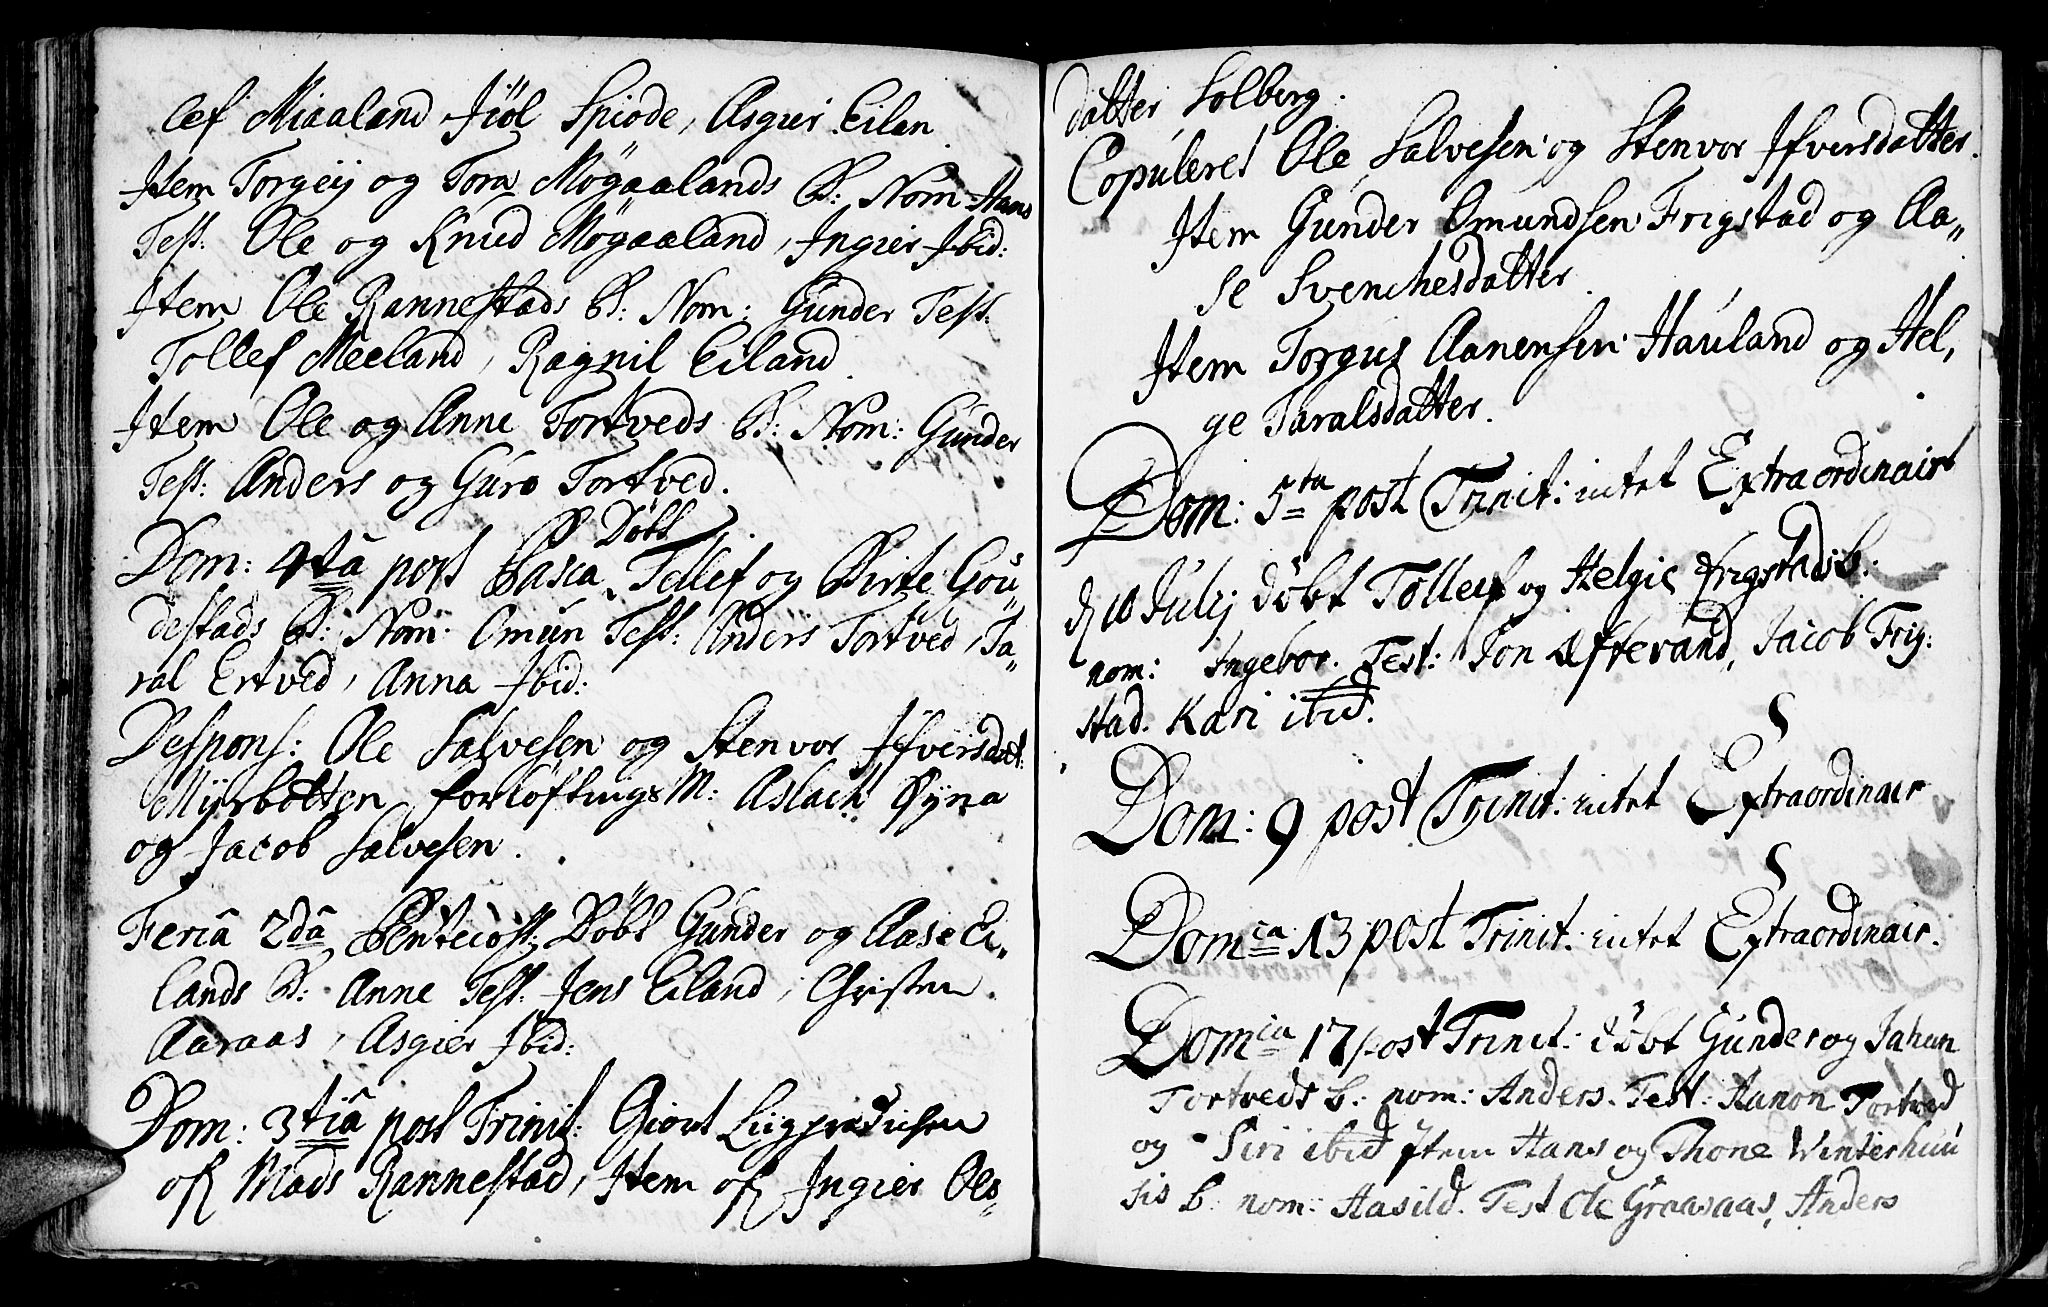 lef Miaaland Jiöl Spiode, Asgier Eilan
Item Torgeij og Tora Mögaalands B: Nom Hans
Test: Ole og Knud Mögaaland, Ingier Ibid:
Item Ole Rannestads B: Nom: Gunder Test:
Tollef Meeland, Ragnil Eiland
Item Ole og Anne Tortveds B: Nom: Gunder
Test: Anders og Guro Tortved.
Döbt
Dom: 4tâ post Pasca, Tellef og Birte Gou„
destads B: Nom: Omun Test: Anders Tortved, Ta„
ral Ertved, Anna Ibid:
Despons: Ole Salvesen og Stenvor Ifversdat:
Myrbotten forlöftings M: Aslach Øyna
og Jacob Salvesen.
Feriâ 2dâ Pentecost: Döbt Gunder og Aase Ei„
lands B: Anne Test: Jens Eiland, Christen
Aaraas, Asgier Ibid:
Dom: 3tiâ post Trinit: Giort
of Mads Rannestad, Item of Ingier Ols„
datter Solberg.
Copuleret Ole Salvesen og Stenvor Ifversdatter.
Item Gunder Omundsen Frigstad og Aa„
se Svenchesdatter.
Item Torgus Aanensen Hauland og Hel,
ge Taralsdatter.
Dom: 5ta post Trinit: intet Extraordinairt
d 10 Julij döbt Tolleif og Helgie Frigstads b:
nom: Ingebor. Test: Jon Øftevand, Jacob Frig:
stad. Kari ibid.
Dom: 9 post Trinit: intet Extraordinair
Domca 13 post Trinit: intet Extraordinair.
Domca 17 post Trinit: döbt Gunder og Johan
Tortveds b: nom: Anders. Test: Aanon Tortved
og Siri ibid Item Hans og Thone Winterhuu
sis b: nom: Aasild. Test Ole Graasaas, Anders